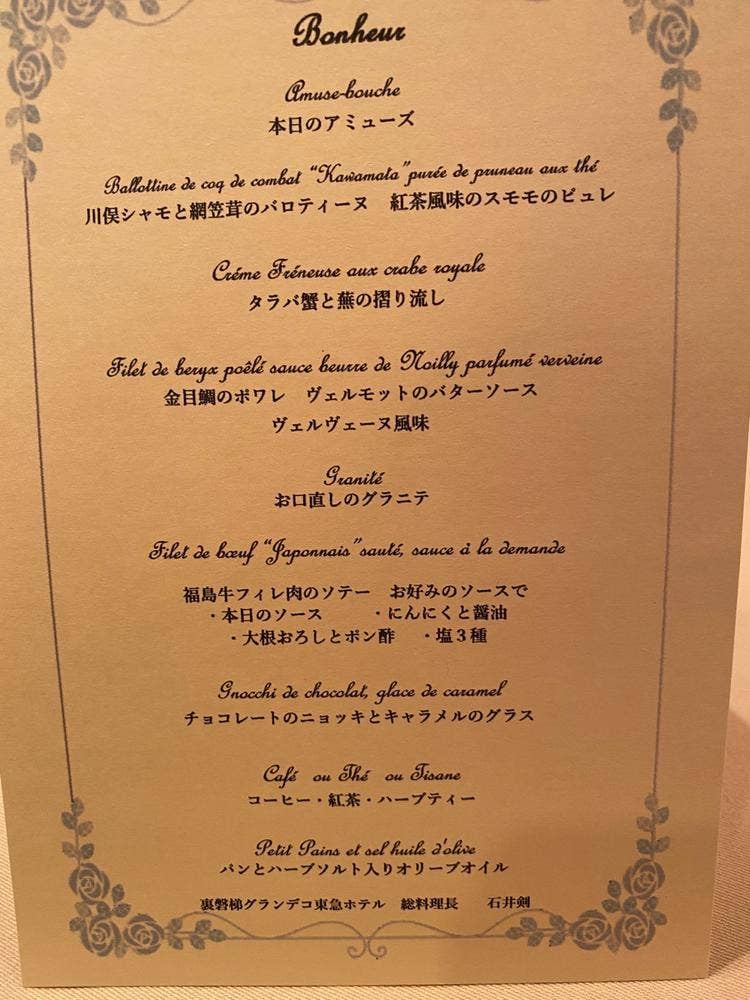 Bonheur
Amuse-bouche
本日のアミューズ
Ballottine de coq de combat “Kawamata”purée de pruneau aux thé
川俣シャモと網笠茸のバロティーヌ　紅茶風味のスモモのピュレ
Créme Fréneuse aux crabe royale
タラバ蟹と蕪の摺り流し
Filet de beryx poêlé sauce beurre de Noilly parfumé verveine
金目鯛のポワレ　ヴェルモットのバターソース
ヴェルヴェーヌ風味
Granité
お口直しのグラニテ
Filet de bœuf “Japonnais”sauté, sauce à la demande
福島牛フィレ肉のソテー　お好みのソースで
・本日のソース　・にんにくと醤油
・大根おろしとポン酢　・塩３種
Gnocchi de chocolat, glace de caramel
チョコレートのニョッキとキャラメルのグラス
Café ou Thé ou Tisane
コーヒー・紅茶・ハーブティー
Petit Pains et sel huile d'olive
パンとハーブソルト入りオリーブオイル
裏磐梯グランデコ東急ホテル　総料理長　石井剣